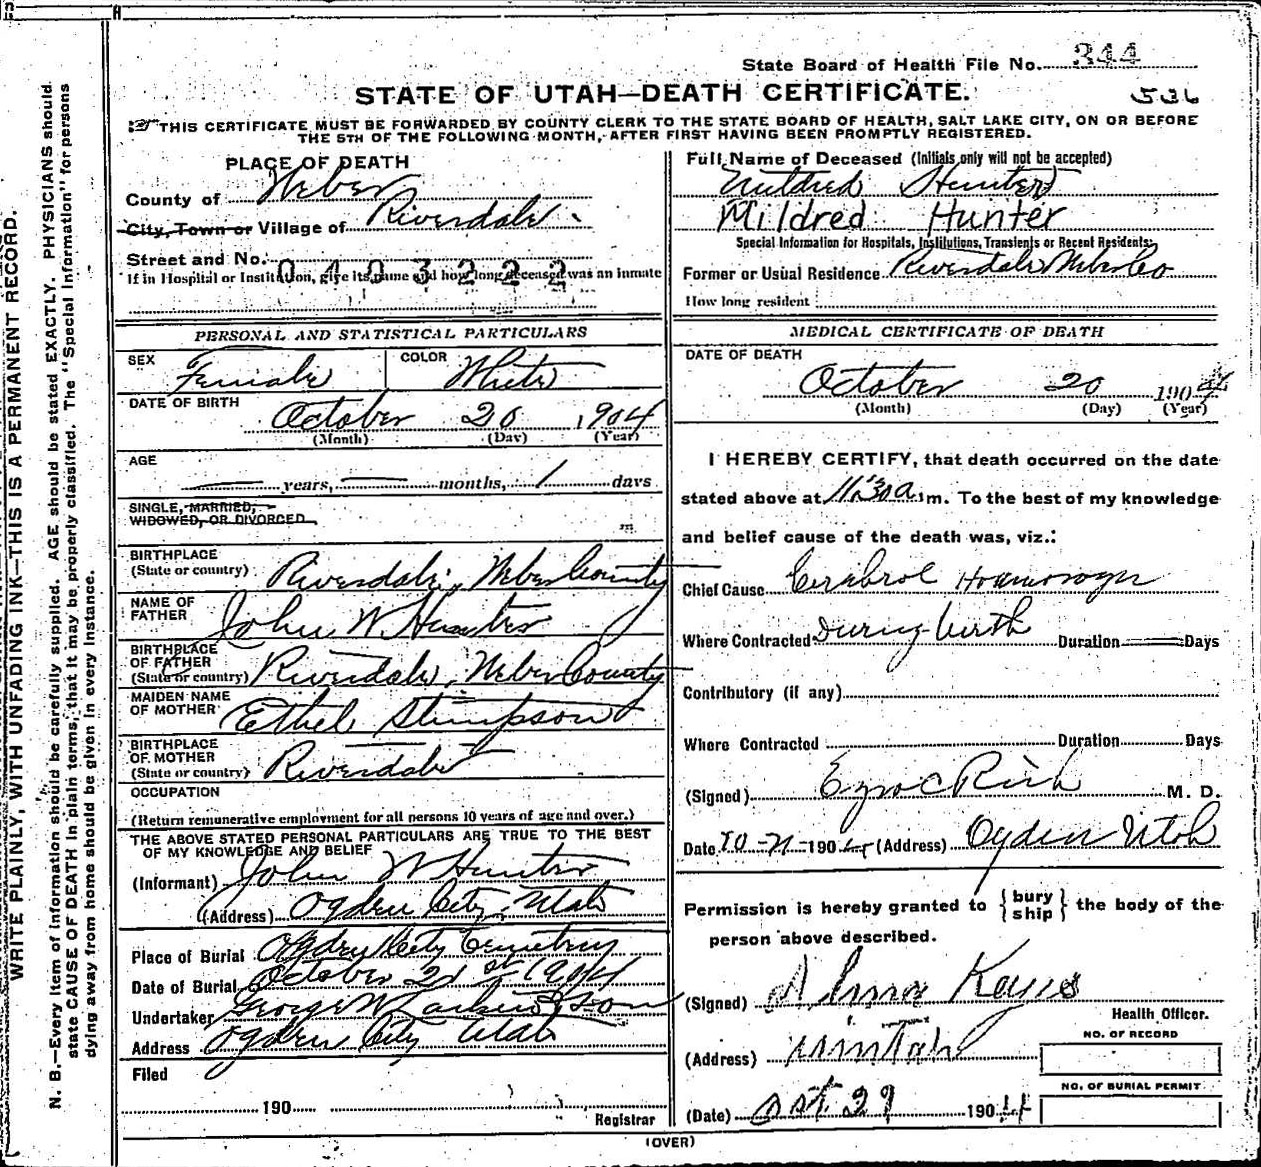 State Board of Health File No. 344
STATE OF UTAH—DEATH CERTIFICATE.
536
THIS CERTIFICATE MUST BE FORWARDED BY COUNTY CLERK TO THE STATE BOARD OF HEALTH, SALT LAKE CITY, ON OR BEFORE
THE 5TH OF THE FOLLOWING MONTH, AFTER FIRST HAVING BEEN PROMPTLY REGISTERED.
PLACE OF DEATH
County of Weber
City, Town or Village of Riverdale
Street and No.
0403222
If in Hospital or Institution, give its name and how long deceased was an inmate
Full Name of Deceased (Initials only will not be accepted)
Mildred Hunter
Mildred Hunter
Special Information for Hospitals, Institutions, Transients or Recent Residents:
Former or Usual Residence Riverdale Weber Co
How long resident
PERSONAL AND STATISTICAL PARTICULARS
SEX Female COLOR White
DATE OF BIRTH
October 20 1904
(Month) (Day) (Year)
AGE
years, months, 1 days
SINGLE, MARRIED,
WIDOWED, OR DIVORCED
BIRTHPLACE
(State or country) Riverdale, Weber County
NAME OF
FATHER John W Hunter
BIRTHPLACE
OF FATHER
(State or country) Riverdale, Weber County
MAIDEN NAME
OF MOTHER Ethel Stimpson
BIRTHPLACE
OF MOTHER
(State or country) Riverdale
OCCUPATION
(Return remunerative employment for all persons 10 years of age and over.)
THE ABOVE STATED PERSONAL PARTICULARS ARE TRUE TO THE BEST
OF MY KNOWLEDGE AND BELIEF
(Informant) John W Hunter
(Address) Ogden City, Utah
Place of Burial Ogden City Cemetery
Date of Burial October 21st 1904
Undertaker George W Larkin & Son
Address Ogden City Utah
Filed
190
Registrar
MEDICAL CERTIFICATE OF DEATH
DATE OF DEATH
October 20 1904
(Month) (Day) (Year)
I HEREBY CERTIFY, that death occurred on the date
stated above at 11:30 a.m. To the best of my knowledge
and belief cause of the death was, viz.:
Chief Cause Cerebral
Where Contracted During birth Duration Days
Contributory (if any)
Where Contracted Duration Days
(Signed) Ezra C Rich M. D.
Date 10-21-1904 (Address) Ogden Utah
Permission is hereby granted to {bury
ship} the body of the
person above described.
(Signed) Alma Keyes
Health Officer.
(Address) Uintah
NO. OF RECORD
NO. OF BURIAL PERMIT
(Date) Oct 29 1904
(OVER)
WRITE PLAINLY, WITH UNFADING INK—THIS IS A PERMANENT RECORD.
N. B.—Every item of information should be carefully supplied. AGE should be stated EXACTLY. PHYSICIANS should
state CAUSE OF DEATH in plain terms, that it may be properly classified. The "Special Information" for persons
dying away from home should be given in every instance.